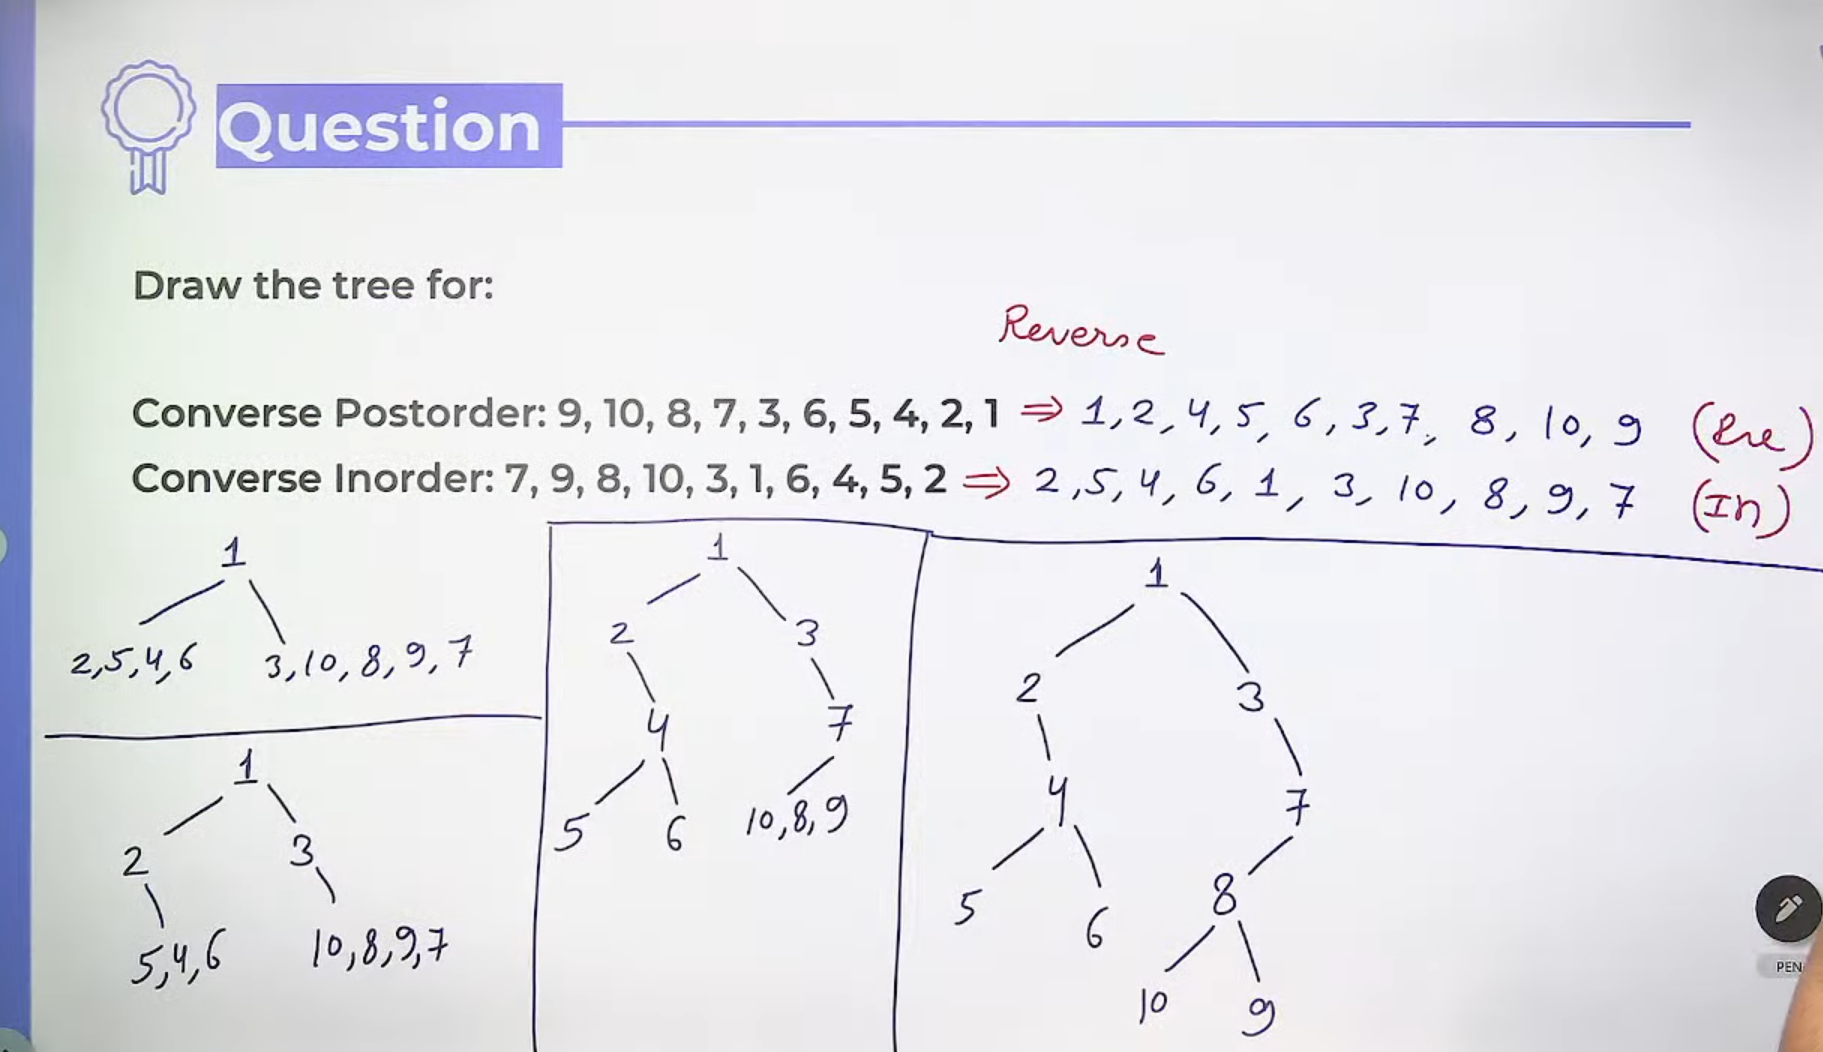 Question
Draw the tree for:
Reverse
Converse Postorder: 9, 10, 8, 7, 3, 6, 5, 4, 2, 1 ⇒ 1, 2, 4, 5, 6, 3, 7, 8, 10, 9 (Pre)
Converse Inorder: 7, 9, 8, 10, 3, 1, 6, 4, 5, 2 ⇒ 2, 5, 4, 6, 1, 3, 10, 8, 9, 7 (In)
1
2,5,4,6 3,10,8,9,7
1
2 3
5,4,6 10,8,9,7
1
2 3
4 7
5 6 10,8,9
1
2 3
4 7
5 6 8
10 9
PEN